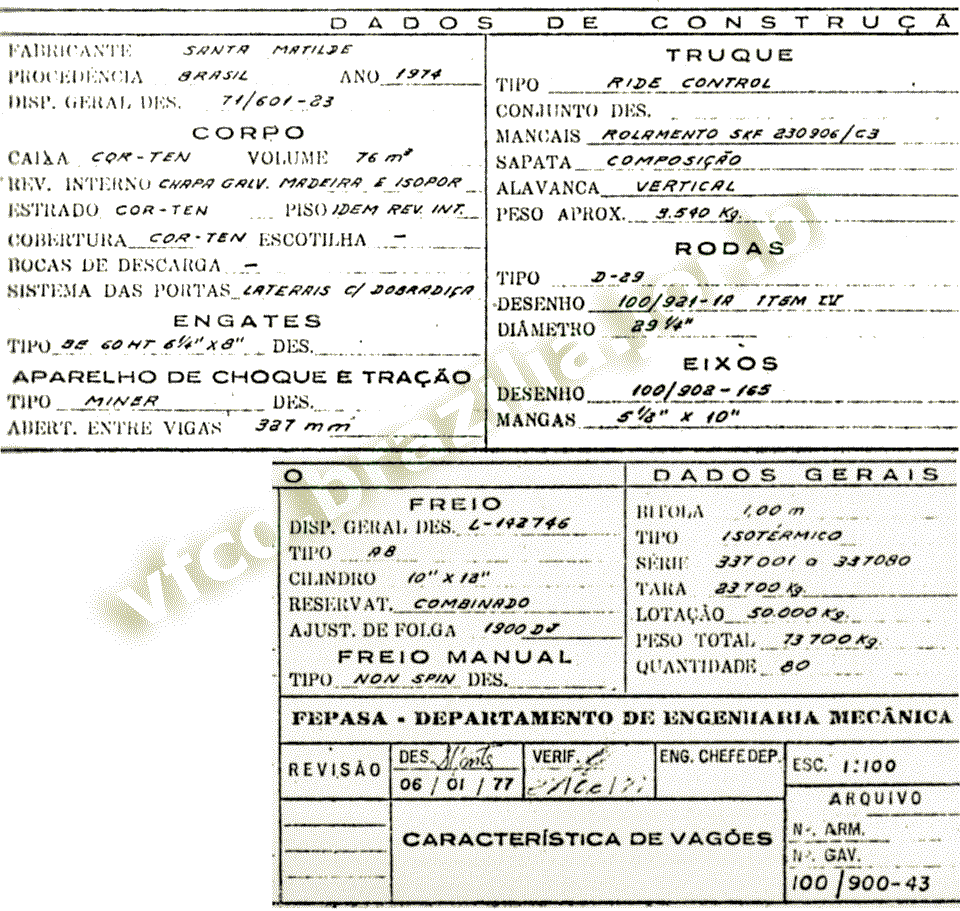 DADOS DE CONSTRUÇÃ
FABRICANTE SANTA MATILDE
PROCEDÊNCIA BRASIL ANO 1974
DISP. GERAL DES. 71/601-23
CORPO
CAIXA COR-TEN VOLUME 76 m³
REV. INTERNO CHAPA GALV. MADEIRA E ISOPOR
ESTRADO COR-TEN PISO IDEM REV. INT.
COBERTURA COR-TEN ESCOTILHA -
BOCAS DE DESCARGA -
SISTEMA DAS PORTAS LATERAIS C/ DOBRADIÇA
ENGATES
TIPO BE 60 HT 6¼" X 8" DES.
APARELHO DE CHOQUE E TRAÇÃO
TIPO MINER DES.
ABERT. ENTRE VIGAS 327 mm
TRUQUE
TIPO RIDE CONTROL
CONJUNTO DES.
MANCAIS ROLAMENTO SKF 230906/C3
SAPATA COMPOSIÇÃO
ALAVANCA VERTICAL
PESO APROX. 3.540 Kg.
RODAS
TIPO D-29
DESENHO 100/921-1A ITEM IV
DIÂMETRO 29 ¼"
EIXOS
DESENHO 100/902-165
MANGAS 5 ½" X 10"
O
FREIO
DISP. GERAL DES. L-142746
TIPO AB
CILINDRO 10" X 12"
RESERVAT. COMBINADO
AJUST. DE FOLGA 1900 DJ
FREIO MANUAL
TIPO NON SPIN DES.
DADOS GERAIS
BITOLA 1,00 m
TIPO ISOTÉRMICO
SÉRIE 337001 a 337080
TARA 23700 Kg.
LOTAÇÃO 50.000 Kg.
PESO TOTAL 73700 Kg.
QUANTIDADE 80
FEPASA - DEPARTAMENTO DE ENGENHARIA MECÂNICA
REVISÃO
DES.
06 / 01 / 77
VERIF.
ENG. CHEFE DEP.
ESC. 1:100
ARQUIVO
Nº. ARM.
Nº. GAV.
100/900-43
CARACTERÍSTICA DE VAGÕES
vfco.brazilia.jor.br